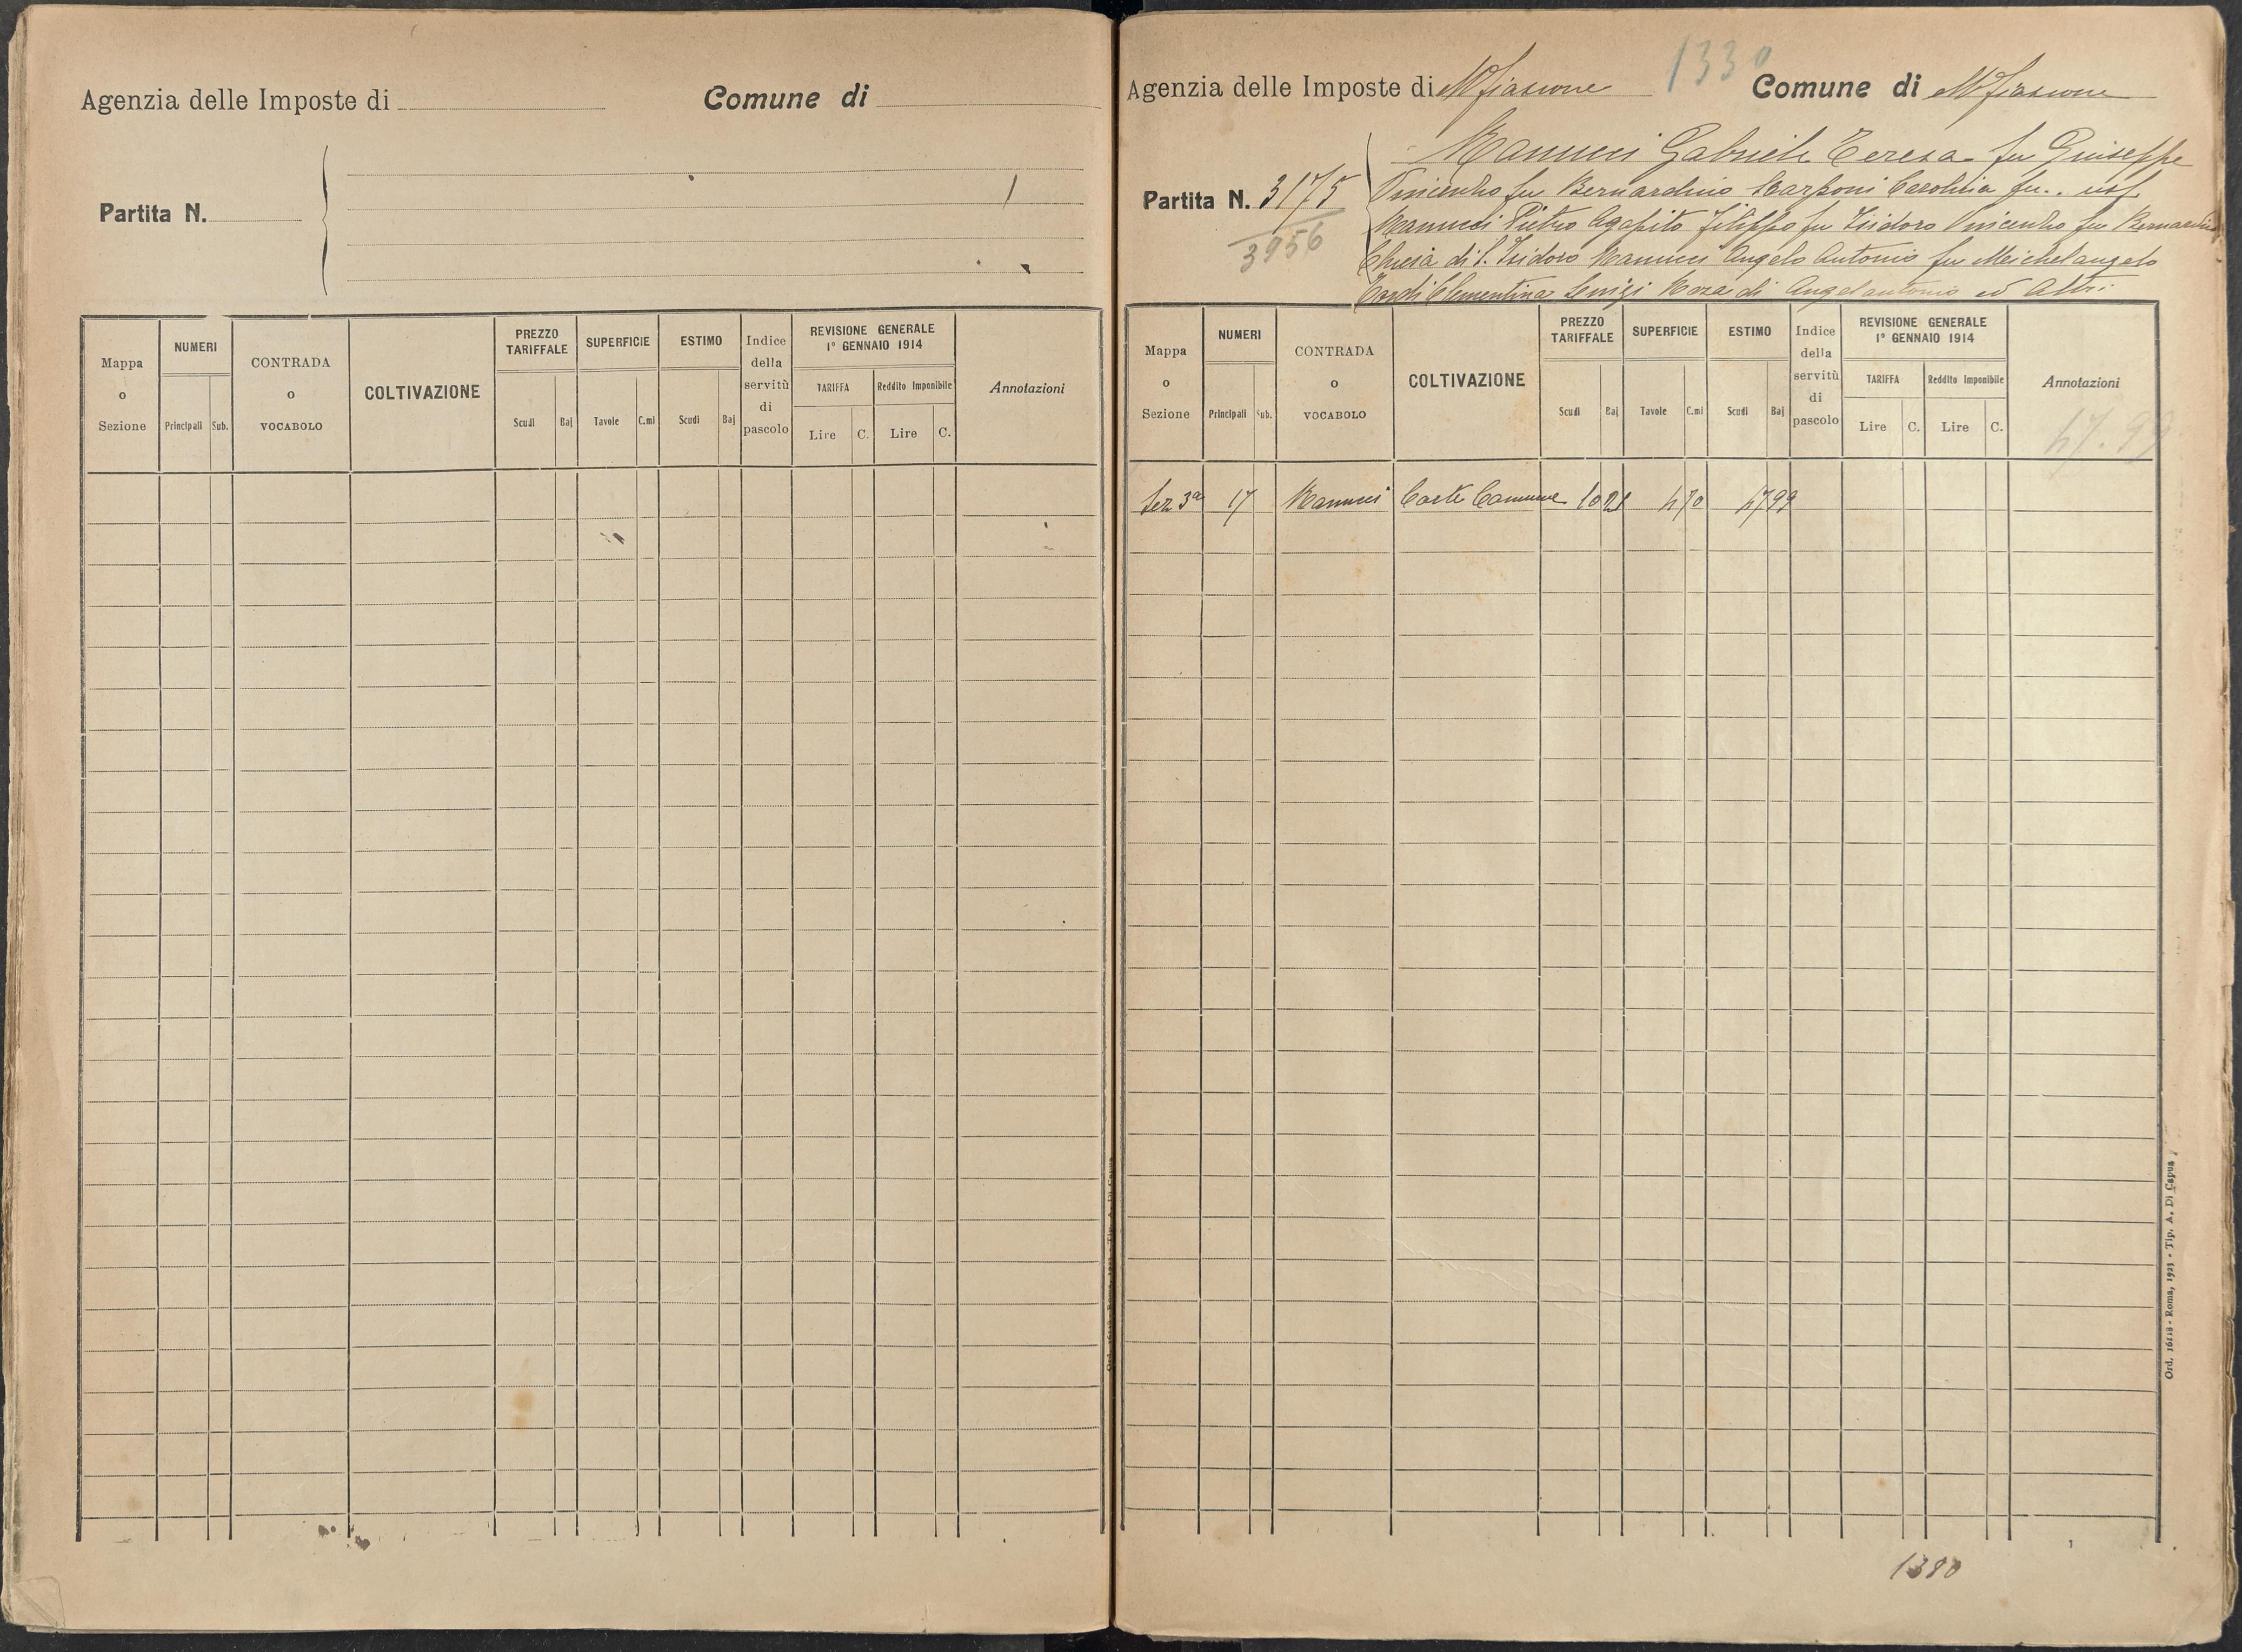 Agenzia delle Imposte di
Comune di
Partita N.
Mappa o Sezione
NUMERI
Principali Sub.
CONTRADA o VOCABOLO
COLTIVAZIONE
PREZZO TARIFFALE
Scudi Baj
SUPERFICIE
Tavole C.mi
ESTIMO
Scudi Baj
Indice della servitù di pascolo
REVISIONE GENERALE
1° GENNAIO 1914
TARIFFA
Lire C.
Reddito Imponibile
Lire C.
Annotazioni
1330
Agenzia delle Imposte di Mfiascone
Comune di Mfiascone
Partita N. 3175
3956
Manucci Gabriele Teresa fu Giuseppe
Vincenzo fu Bernardino Carolina fu .. usf
Manucci Pietro Agapito Filippo fu Isidoro Vincenzo fu Bernardino
Chiesa di S. Isidoro Manucci Angelo Antonio fu Meichelangelo
Clementina Luigi Rosa di Angelantonio ed Altri
Mappa o Sezione
NUMERI
Principali Sub.
CONTRADA o VOCABOLO
COLTIVAZIONE
PREZZO TARIFFALE
Scudi Baj
SUPERFICIE
Tavole C.mi
ESTIMO
Scudi Baj
Indice della servitù di pascolo
REVISIONE GENERALE
1° GENNAIO 1914
TARIFFA
Lire C.
Reddito Imponibile
Lire C.
Annotazioni
47.99
Sez 3a 17 Manucci Corte Comune 1021 470 4799
Ord. 16118 - Roma, 1923 - Tip. A. Di Capua
1380